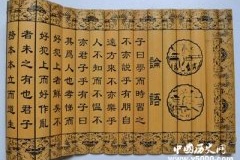 論語
子曰學而時習之
不亦說乎有朋自
遠方來不亦樂乎
人不知而不慍不
亦君子乎有子曰
其為人也孝悌而
好犯上者鮮矣不
好犯上而好作亂
者未之有也君子
務本本立而道生
中国历史网